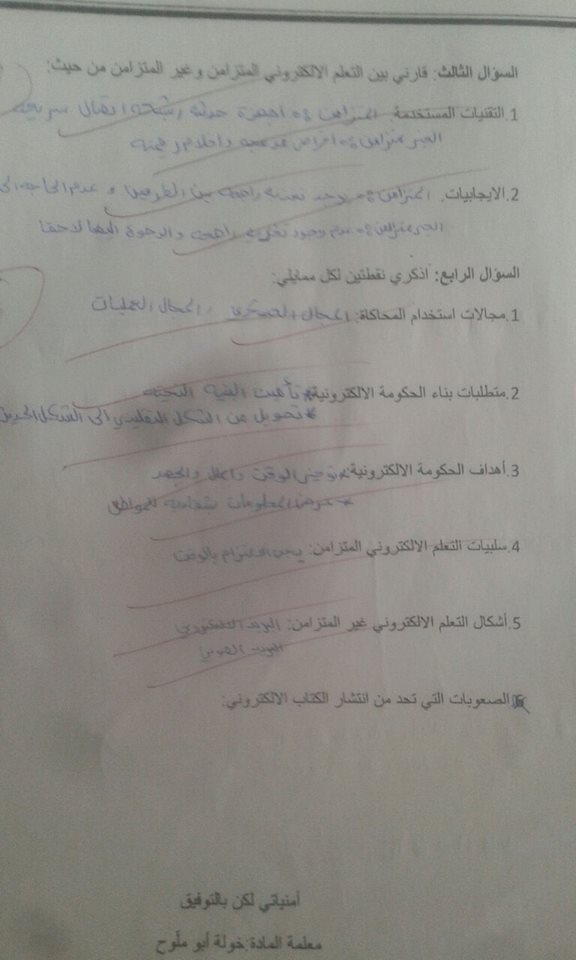 السؤال الثالث: قارني بين التعلم الالكتروني المتزامن وغير المتزامن من حيث:
1.التقنيات المستخدمة: المتزامن: أجهزة حديثة، شبكة اتصال سريعة
الغير متزامن: أقراص مدمجة وأفلام رقمية
2.الايجابيات: المتزامن: يوجد تغذية راجعة بين الطرفين وعدم الحاجة الى
الغير متزامن: عدم وجود تغذية راجعة والرجوع اليها لاحقا
السؤال الرابع: اذكري نقطتين لكل ممايلي:
1.مجالات استخدام المحاكاة: المجال العسكري، المجال العمليات
2.متطلبات بناء الحكومة الالكترونية: * تأهيل البنية التحتية
* تحويل من الشكل التقليدي الى الشكل الحديث
3.أهداف الحكومة الالكترونية: * توفير الوقت والمال والجهد
* عرض المعلومات بشفافية للمواطن
4.سلبيات التعلم الالكتروني المتزامن: يجب الالتزام بالوقت
5.أشكال التعلم الالكتروني غير المتزامن: البريد الالكتروني
البريد الصوتي
الصعوبات التي تحد من انتشار الكتاب الالكتروني:
أمنياتي لكن بالتوفيق
معلمة المادة:خولة أبو ملّوح